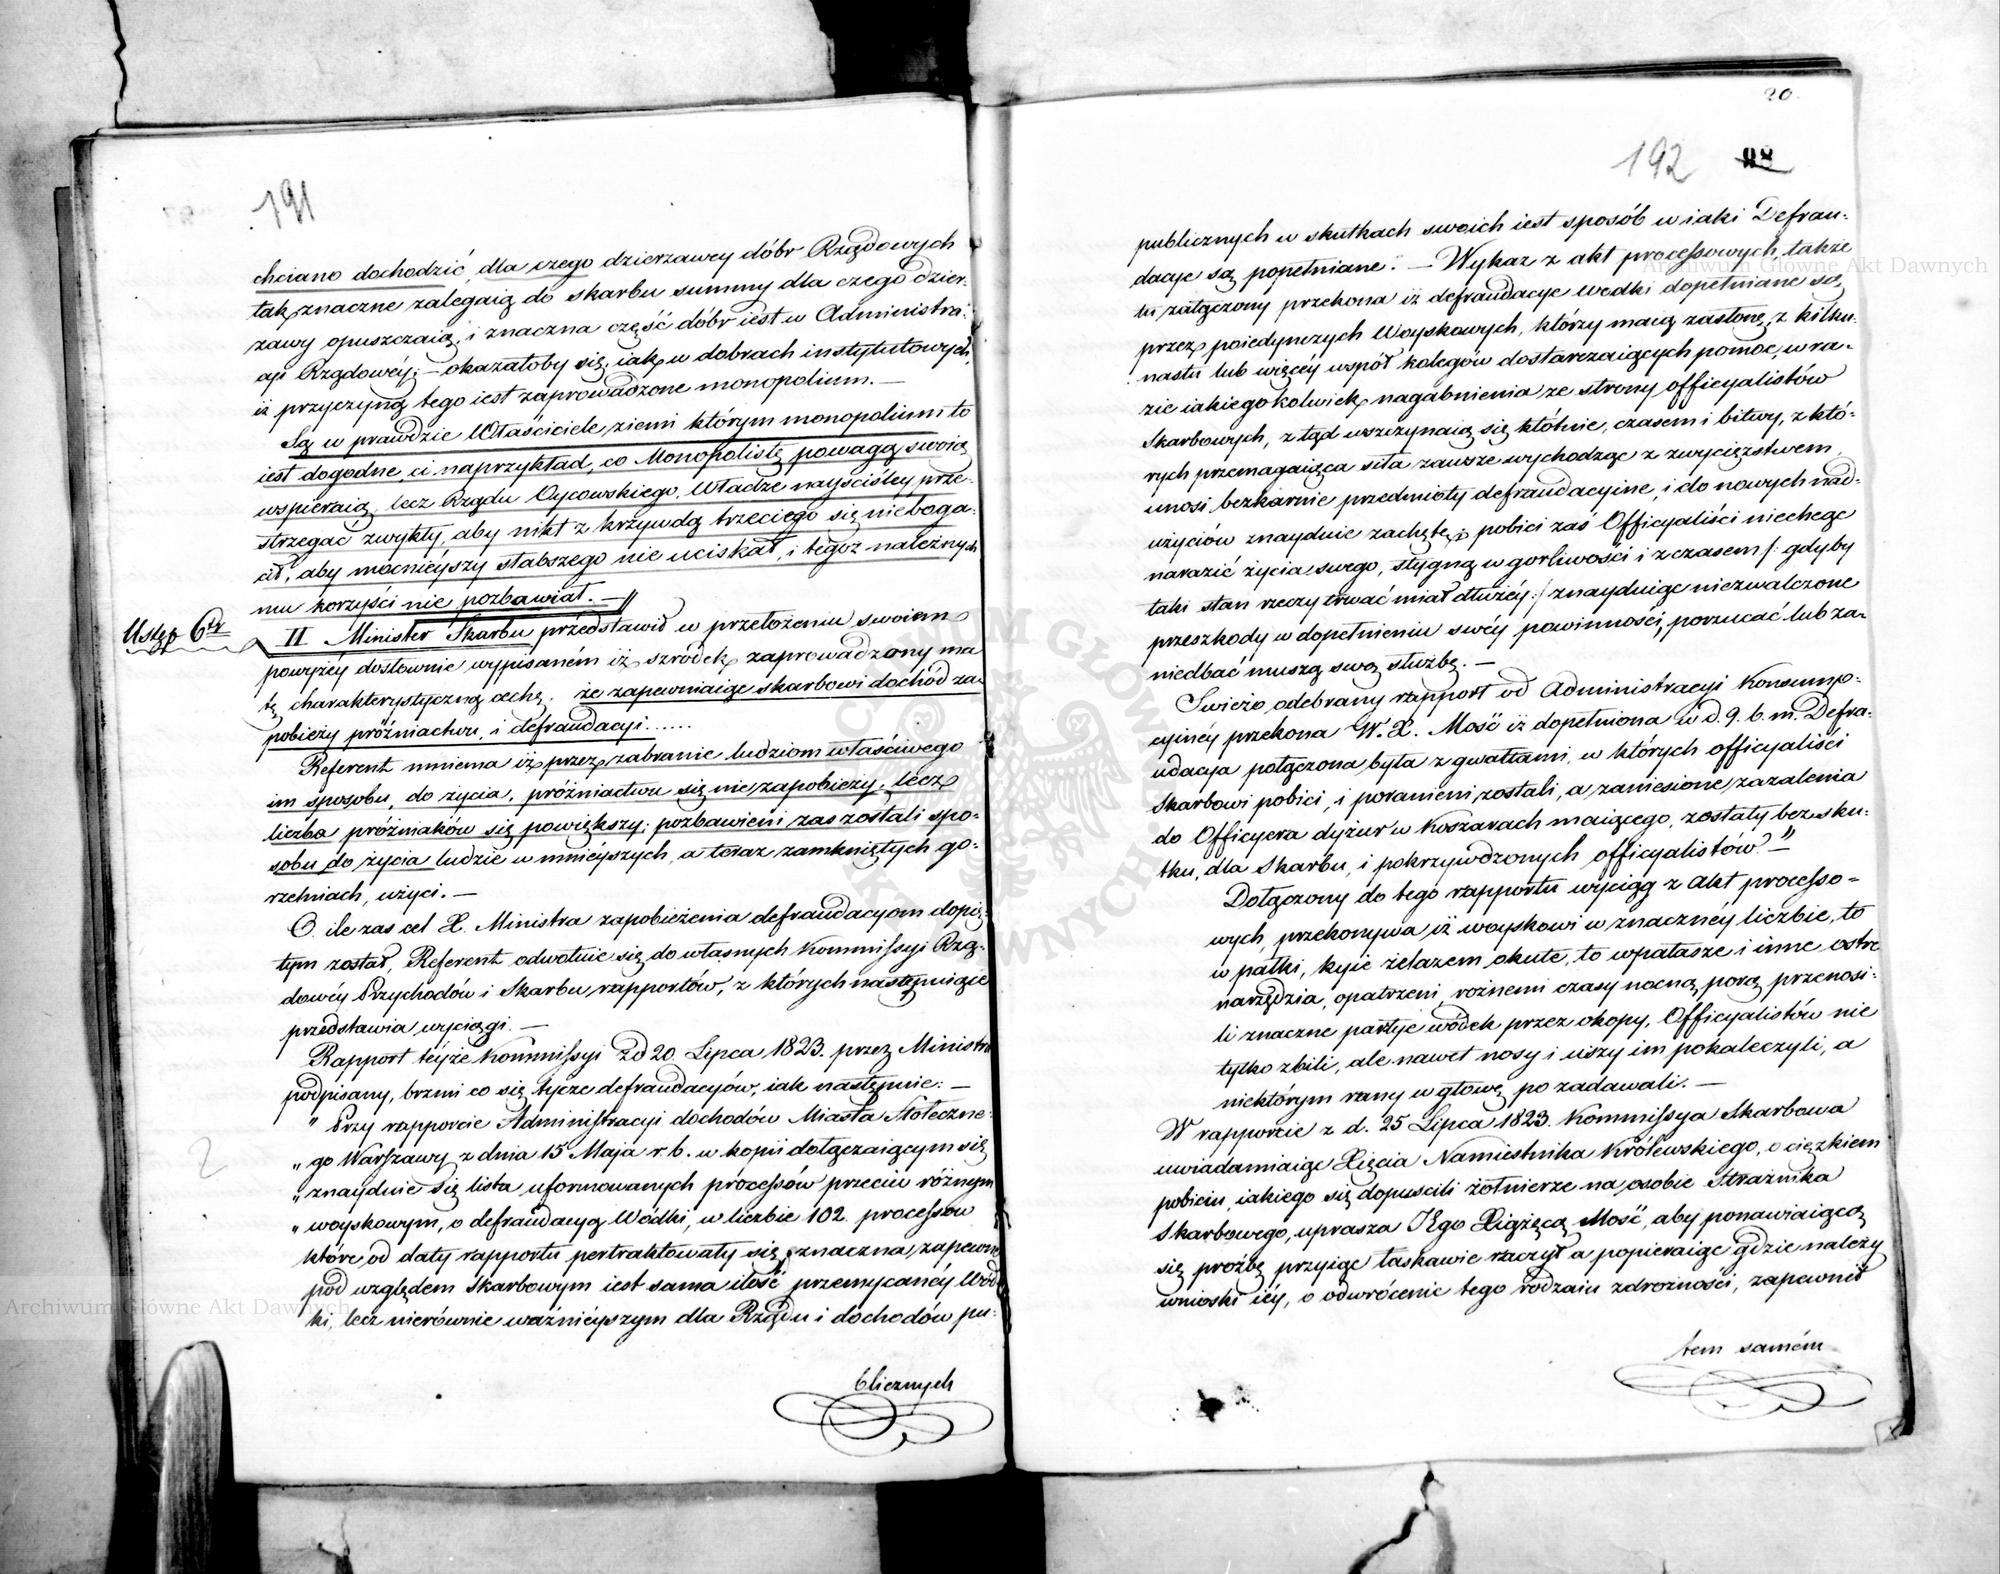 191
chciano dochodzić, dla czego dzierzawcy dóbr Rządowych
tak znaczne zalegaią do skarbu summy dla czego dzier-
zawy opuszczaią, i znaczna część dóbr iest w Administra-
cyi Rządowéy; – okazałoby się, iak w dobrach instytutowych,
iż przyczyną tego iest zaprowadzone monopolium. —
Są w prawdzie Właściciele ziemi którym monopolium to
iest dogodne, ci naprzykład, co Monopolistę powagą swoią
wspieraią, lecz Rządu Oycowskiego, Władze nayściśley prze-
strzegać zwykły, aby nikt z krzywdą trzeciego się nieboga-
cił, aby mocniéyszy słabszego nie uciskał, i tegoż należnych
mu korzyści nie pozbawiał. —
Ustęp 6ty
II Minister Skarbu przedstawił w przełożeniu swoiem
powyżéy dosłownie wypisaném iż szrodek zaprowadzony ma
tę charakterystyczną cechę, że zapewniaiąc skarbowi dochód za-
pobieży próżniactwu, i defraudacyi......
Referent mniema iż przez zabranie ludziom właściwego
im sposobu, do życia, próżniactwu się nie zapobieży, lecz
liczba próżniaków się powiększy; pozbawieni zaś zostali spo-
sobu do życia ludzie w mnieyszych, a teraz zamkniętych go-
rzelniach, użyci. —
O ile zas cel X. Ministra zapobieżenia defraudacyom dopię-
tym został, Referent odwołuie się do własnych Kommissyi Rzą-
dowéy Przychodów i Skarbu rapportów, z których następuiące
przedstawia wyciągi. —
Rapport téyże Kommissyi z d 20. Lipca 1823. przez Ministra
podpisany, brzmi co się tycze defraudacyów, iak następuie: —
" Przy rapporcie Administracyi dochodów Miasta Stołeczne-
" go Warszawy z dnia 15 Maja r. b. w kopii dołączaiącym się
" znayduie się lista uformowanych processów przeciw różnym
" woyskowym, o defraudacyą Wódki, w liczbie 102. processów
które od daty rapportu pertraktowały się, znaczna zapewne
pod względem skarbowym iest sama ilość przemycanéy Wód-
ki, lecz nierównie ważniéyszym dla Rządu i dochodów pu-
blicznych
20.
192 98
publicznych w skutkach swoich iest sposób w iaki Defrau-
dacye są popełniane. — Wykaz z akt processowych, także
tu załączony przekona iż defraudacye Wodki dopełniane są,
przez poiedynczych Woyskowych, którzy maią zasłonę, z kilku-
nastu lub więcéy współ kolegów dostarczaiących pomoc, w ra-
zie iakiegokolwiek nagabnienia ze strony officyalistów
Skarbowych, z tąd wszczynaią się kłótnie, czasem i bitwy, z któ-
rych przemagaiąca siła zawsze wychodząc z zwycięzstwem,
unosi bezkarnie przedmioty defraudacyine, i do nowych nad-
użyciów znayduie zachętę, pobici zaś Officyaliści niechcąc
narazić życia swego, stygną w gorliwości i z czasem /: gdyby
taki stan rzeczy trwać miał dłużéy :/ znayduiąc niezwalczone
przeszkody w dopełnieniu swéy powinności, porzucać lub za-
niedbać muszą swą służbę. —
Swieżo odebrany rapport od Administracyi Konsump-
cyinéy przekona W. X. Mość iż dopełniona w d. 9. b. m. Defra-
udacya połączona była z gwałtami, w których officyaliści
Skarbowi pobici, i poranieni zostali, a zaniesione zazalenia
do Officyera dyżur w Koszarach maiącego, zostały bez sku-
tku, dla Skarbu, i pokrzywdzonych officyalistów." —
Dołączony do tego rapportu wyciąg z akt processo-
wych, przekonywa iż woyskowi w znacznéy liczbie, to
w pałki, kyie żelazem okute, to w pałasze i inne ostre
narzędzia, opatrzeni, rożnemi czasy nocną porą przenosi-
li znaczne partye wódek przez okopy, Officyalistów nie
tylko zbili, ale nawet nosy i uszy im pokaleczyli, a
niektórym rany w głowę po zadawali. —
W rapporcie z d. 25 Lipca 1823. Kommissya Skarbowa
uwiadamiaiąc Xięcia Namiestnika Królewskiego, o cięzkiem
pobiciu, iakiego się dopuscili żołnierze na osobie Straznika
Skarbowego, uprasza Jego Xiążęcą Mość, aby ponawiaiącą
się proźbę przyiąc łaskawie raczył a popieraiąc gdzie należy
wnioski iéy, o odwrócenie tego rodzaiu zdrożności, zapewnił
tem samém